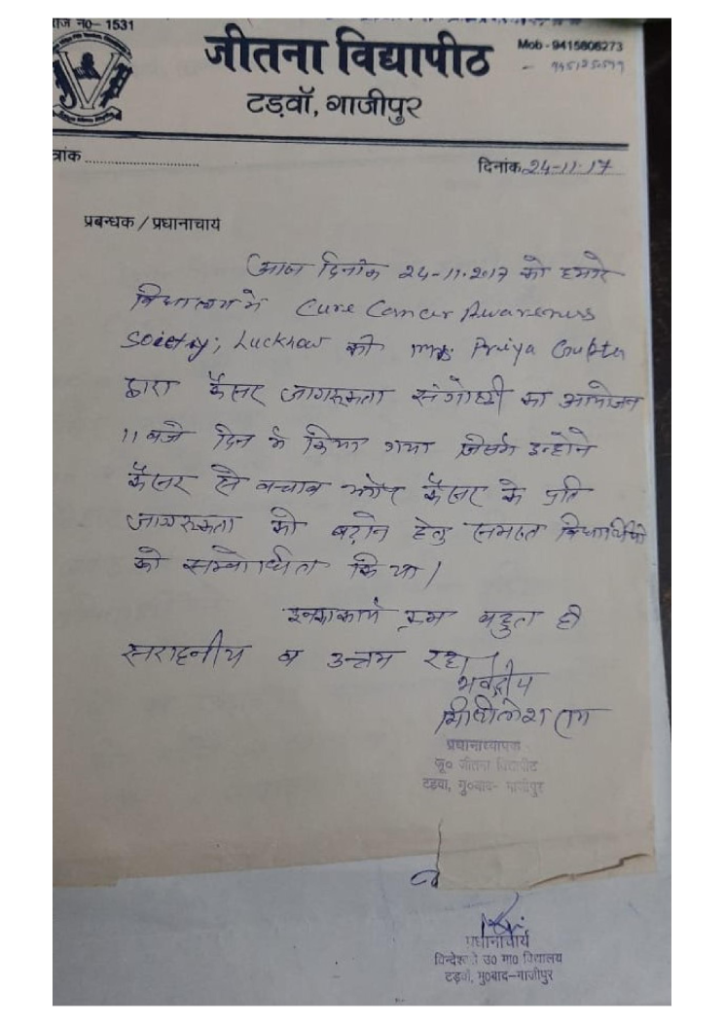 राज न0- 1531
जीतना विद्यापीठ
Mob - 9415606273
टड़वॉ, गाजीपुर
त्रांक
दिनांक 24-11-17
प्रबन्धक / प्रधानाचार्य
आज दिनांक 24-11-2017 को हमारे
विद्यालय मे Cure Cancer Awareness
Society; Lucknow की Mrs Priya Gupta
द्वारा कैंसर जागरूकता संगोष्ठी का आयोजन
11 बजे दिन मे किया गया जिसमे इन्होने
कैंसर से बचाव और कैंसर के प्रति
जागरूकता को बढ़ाने हेतु समस्त विद्यार्थियो
को सम्बोधित किया।
इनका कार्य बहुत ही
सराहनीय व उत्तम रहा।
भवदीय
राम
प्रधानाध्यापक
जू० जीतना विद्यापीठ
टड़वा, मु०बाद- गाजीपुर
प्रधानाचार्य
उ० मा० विद्यालय
टड़वॉ, मु०बाद-गाजीपुर